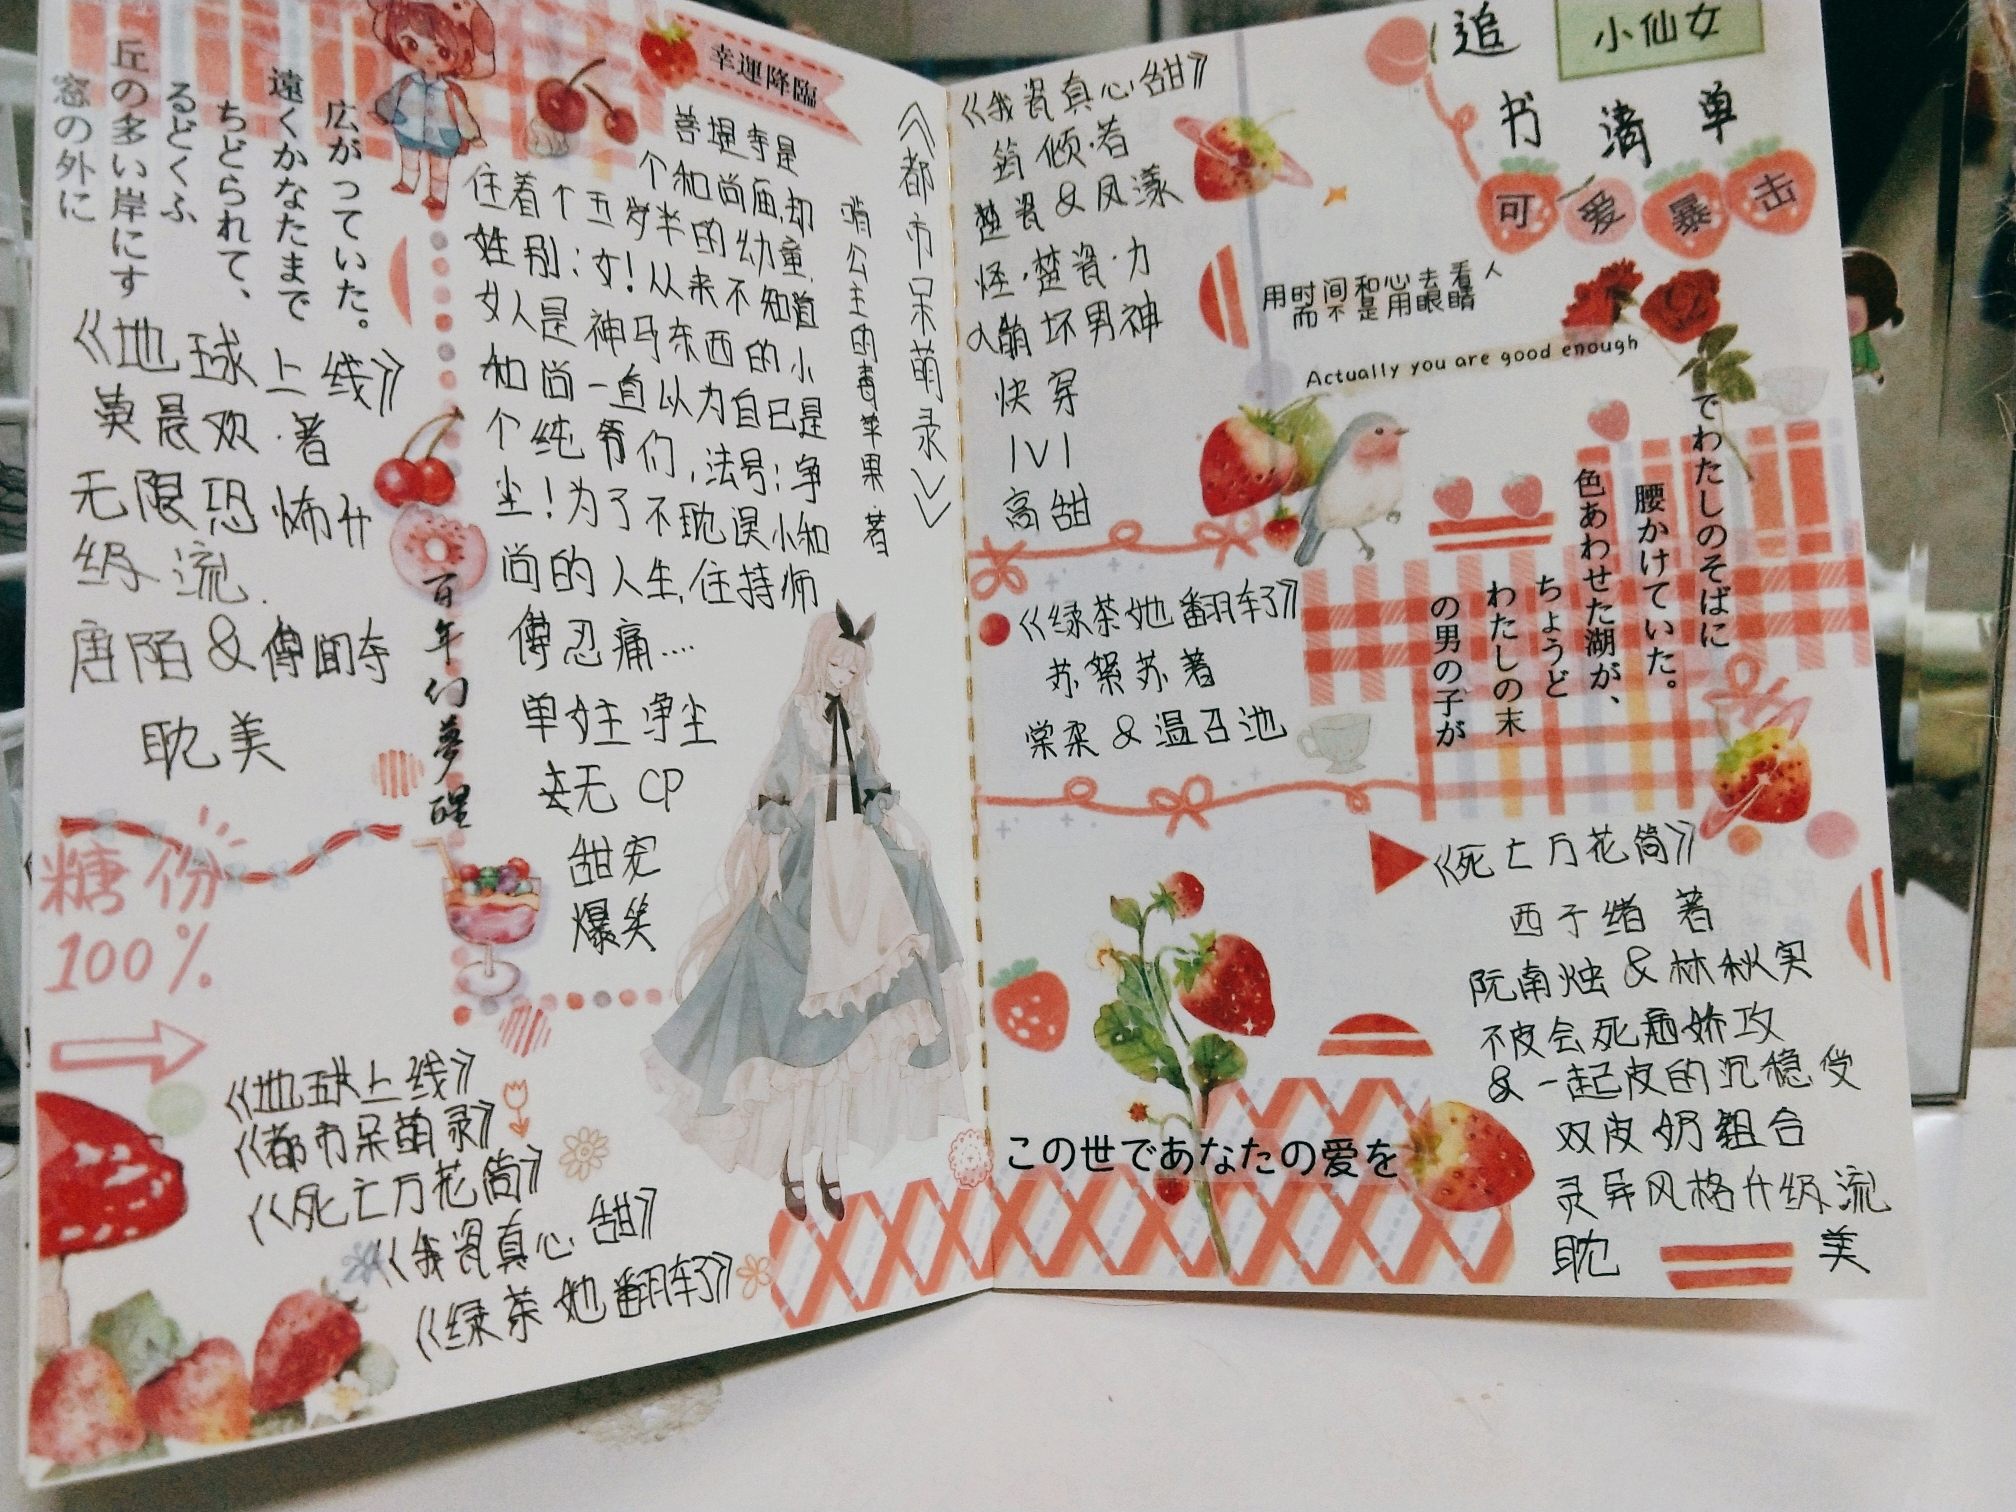 幸運降臨
窓の外に
丘の多い岸にす
るどくふ
ちどられて、
遠くかなたまで
広がっていた。
《地球上线》
莫晨欢·著
无限恐怖升
级流.
唐陌&傅闻夺
耽美
百年幻夢醒
糖份
100%
菩提寺是
个和尚庙,却
住着个五岁半的幼童,
姓别:女!从来不知道
女人是神马东西的小
和尚一直以为自己是
个纯爷们,法号:净
尘!为了不耽误小和
尚的人生,住持师
傅忍痛....
单女主 净尘
无CP
甜宠
爆笑
《都市呆萌录》
消公主的毒苹果 著
《地球上线》
《都市呆萌录》
《死亡万花筒》
《我瓷真心甜》
《绿茶她翻车了》
追
书清单
小仙女
可爱暴击
《我瓷真心甜》
倾·著
楚瓷&凤漾
怪·楚瓷·力
崩坏男神
快穿
1V1
高甜
用时间和心去看人
而不是用眼睛
Actually you are good enough
でわたしのそばに
腰かけていた。
色あわせた湖が、
ちょうど
わたしの末
の男の子が
《绿茶她翻车了》
苏絮苏著
棠柔&温召池
《死亡万花筒》
西子绪 著
阮南烛&林秋实
不皮会死病娇攻
&一起皮的沉稳受
双皮奶组合
灵异风格升级流
耽美
この世であなたの愛を